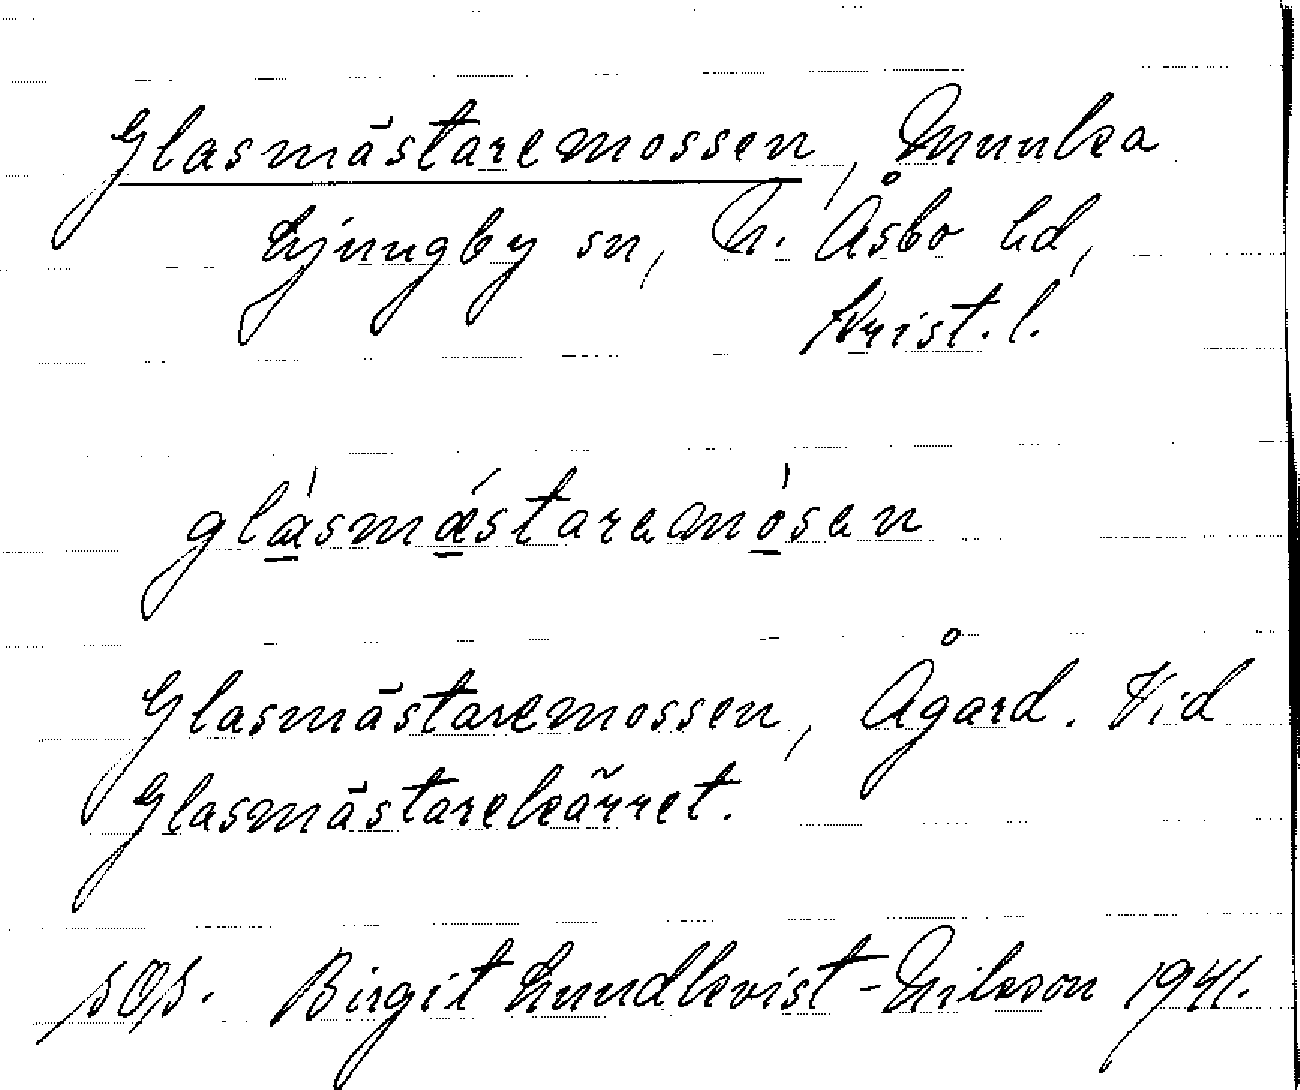 Glasmästaremossen, Munka
Ljungby sn, N. Åsbo hd,
Krist. l.
glásmǽstaremósen
Glasmästaremossen, Ågard. Vid
Glasmästarekärret.
Birgit Lundkvist-Nilsson 1941.